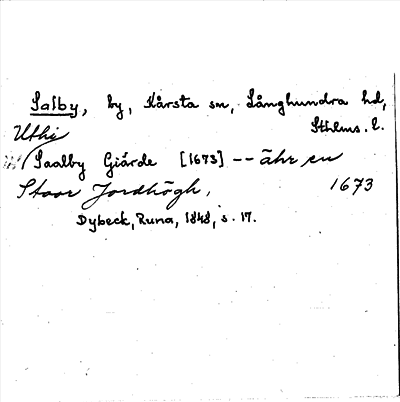 Salby, by, Kårsta sn, Långhundra hd,
Uthi Sthlms. l.
Saalby Giärde [1673] -- ähr en
Stoor Jordhögh, 1673
Dybeck, Runa, 1848, s. 17.